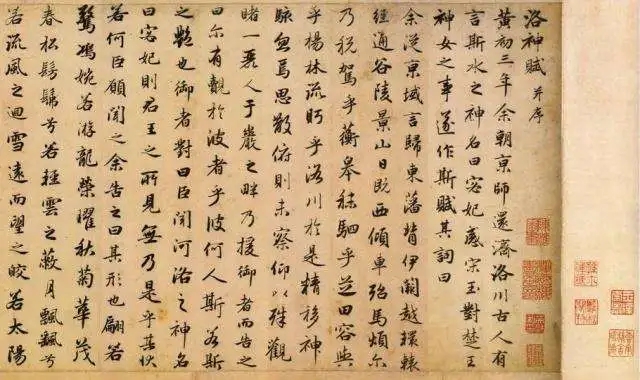 洛神賦 并序
黃初三年余朝京師還濟洛川古人有
言斯水之神名曰宓妃感宋玉對楚王
神女之事遂作斯賦其詞曰
余從京域言歸東藩背伊闕越轘轅
經通谷陵景山日既西傾車殆馬煩爾
乃稅駕乎蘅皋秣駟乎芝田容與
乎楊林流眄乎洛川於是精移神
駭忽焉思散俯則未察仰以殊觀
睹一麗人于巖之畔乃援御者而告之
曰爾有覿於彼者乎彼何人斯若斯
之豔也御者對曰臣聞河洛之神名
曰宓妃則君王之所見無乃是乎其狀
若何臣願聞之余告之曰其形也翩若
驚鴻婉若游龍榮曜秋菊華茂
春松髣髴兮若輕雲之蔽月飄飄兮
若流風之迴雪遠而望之皎若太陽